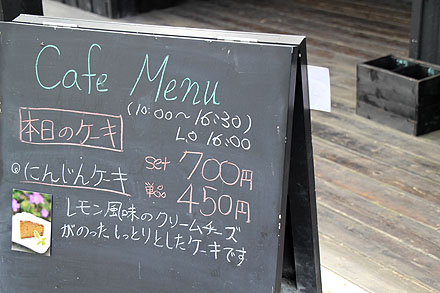 Cafe Menu
(10:00〜16:30)
L.O 16:00
本日のケーキ
◎にんじんケーキ
set 700円
単品 450円
レモン風味のクリームチーズ
がのったしっとりとしたケーキです